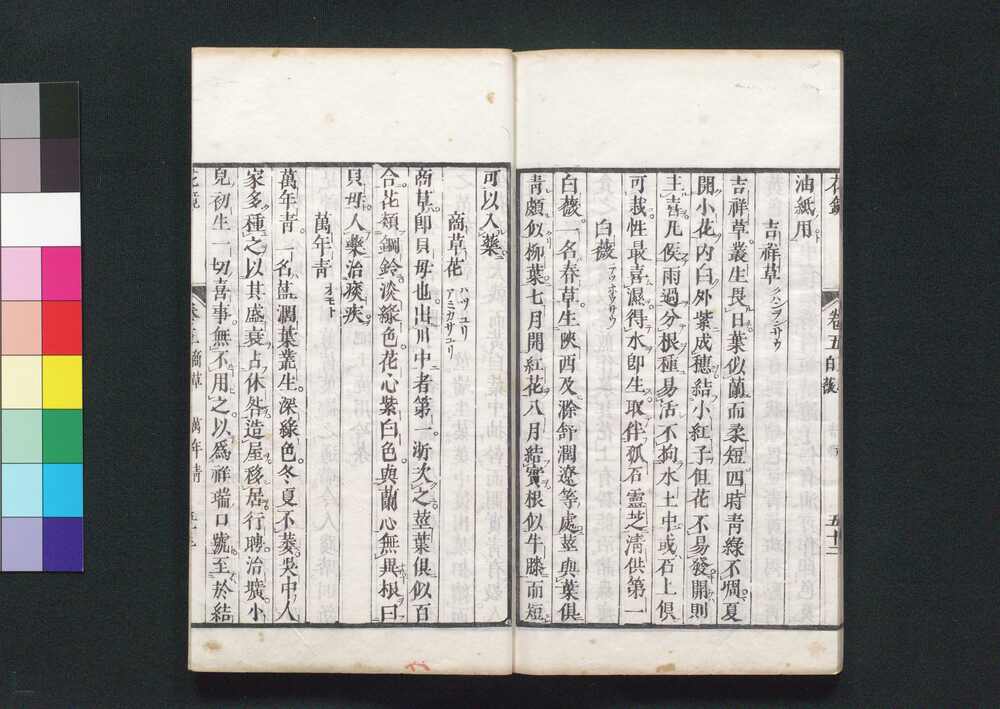 花鏡 卷五 白薇 五十二
油紙用
吉祥草
吉祥草叢生畏日葉似蘭而柔短四時青綠不凋夏
開小花內白外紫成穗結小紅子但花不易發開則
主喜凡候雨過分根種易活不拘水土中或石上俱
可栽性最喜濕得水即生取伴孤石靈芝清供第一
白薇
白薇一名春草生陝西及滁舒潤遼等處莖與葉俱
青頗似柳葉七月開紅花八月結實根似牛膝而短
可以入藥
商草花 ハツユリ アミカサユリ
商草即貝母也出川中者第一浙次之莖葉俱似百
合花類鋼鈴淡綠色花心紫白色與蘭心無異根曰
貝母人藥治痰疾
萬年青 オモト
萬年青一名蒀濶葉叢生深綠色冬夏不萎吳中人
家多種之以其盛衰占休咎造屋移居行聘治壙小
兒初生一切喜事無不用之以爲祥瑞口號至於結
商草 萬年青